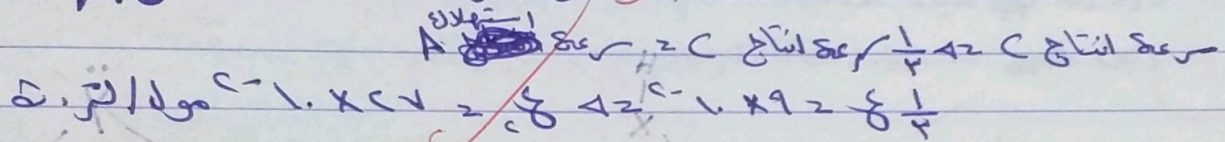 سرعة انتاج C = ⇐ 1/3 سرعة انتاج C = سرعة استهلاك A
1/3 ع = 9 × 10^-2 ⇐ ع = 27 × 10^-2 مول/لتر . ث